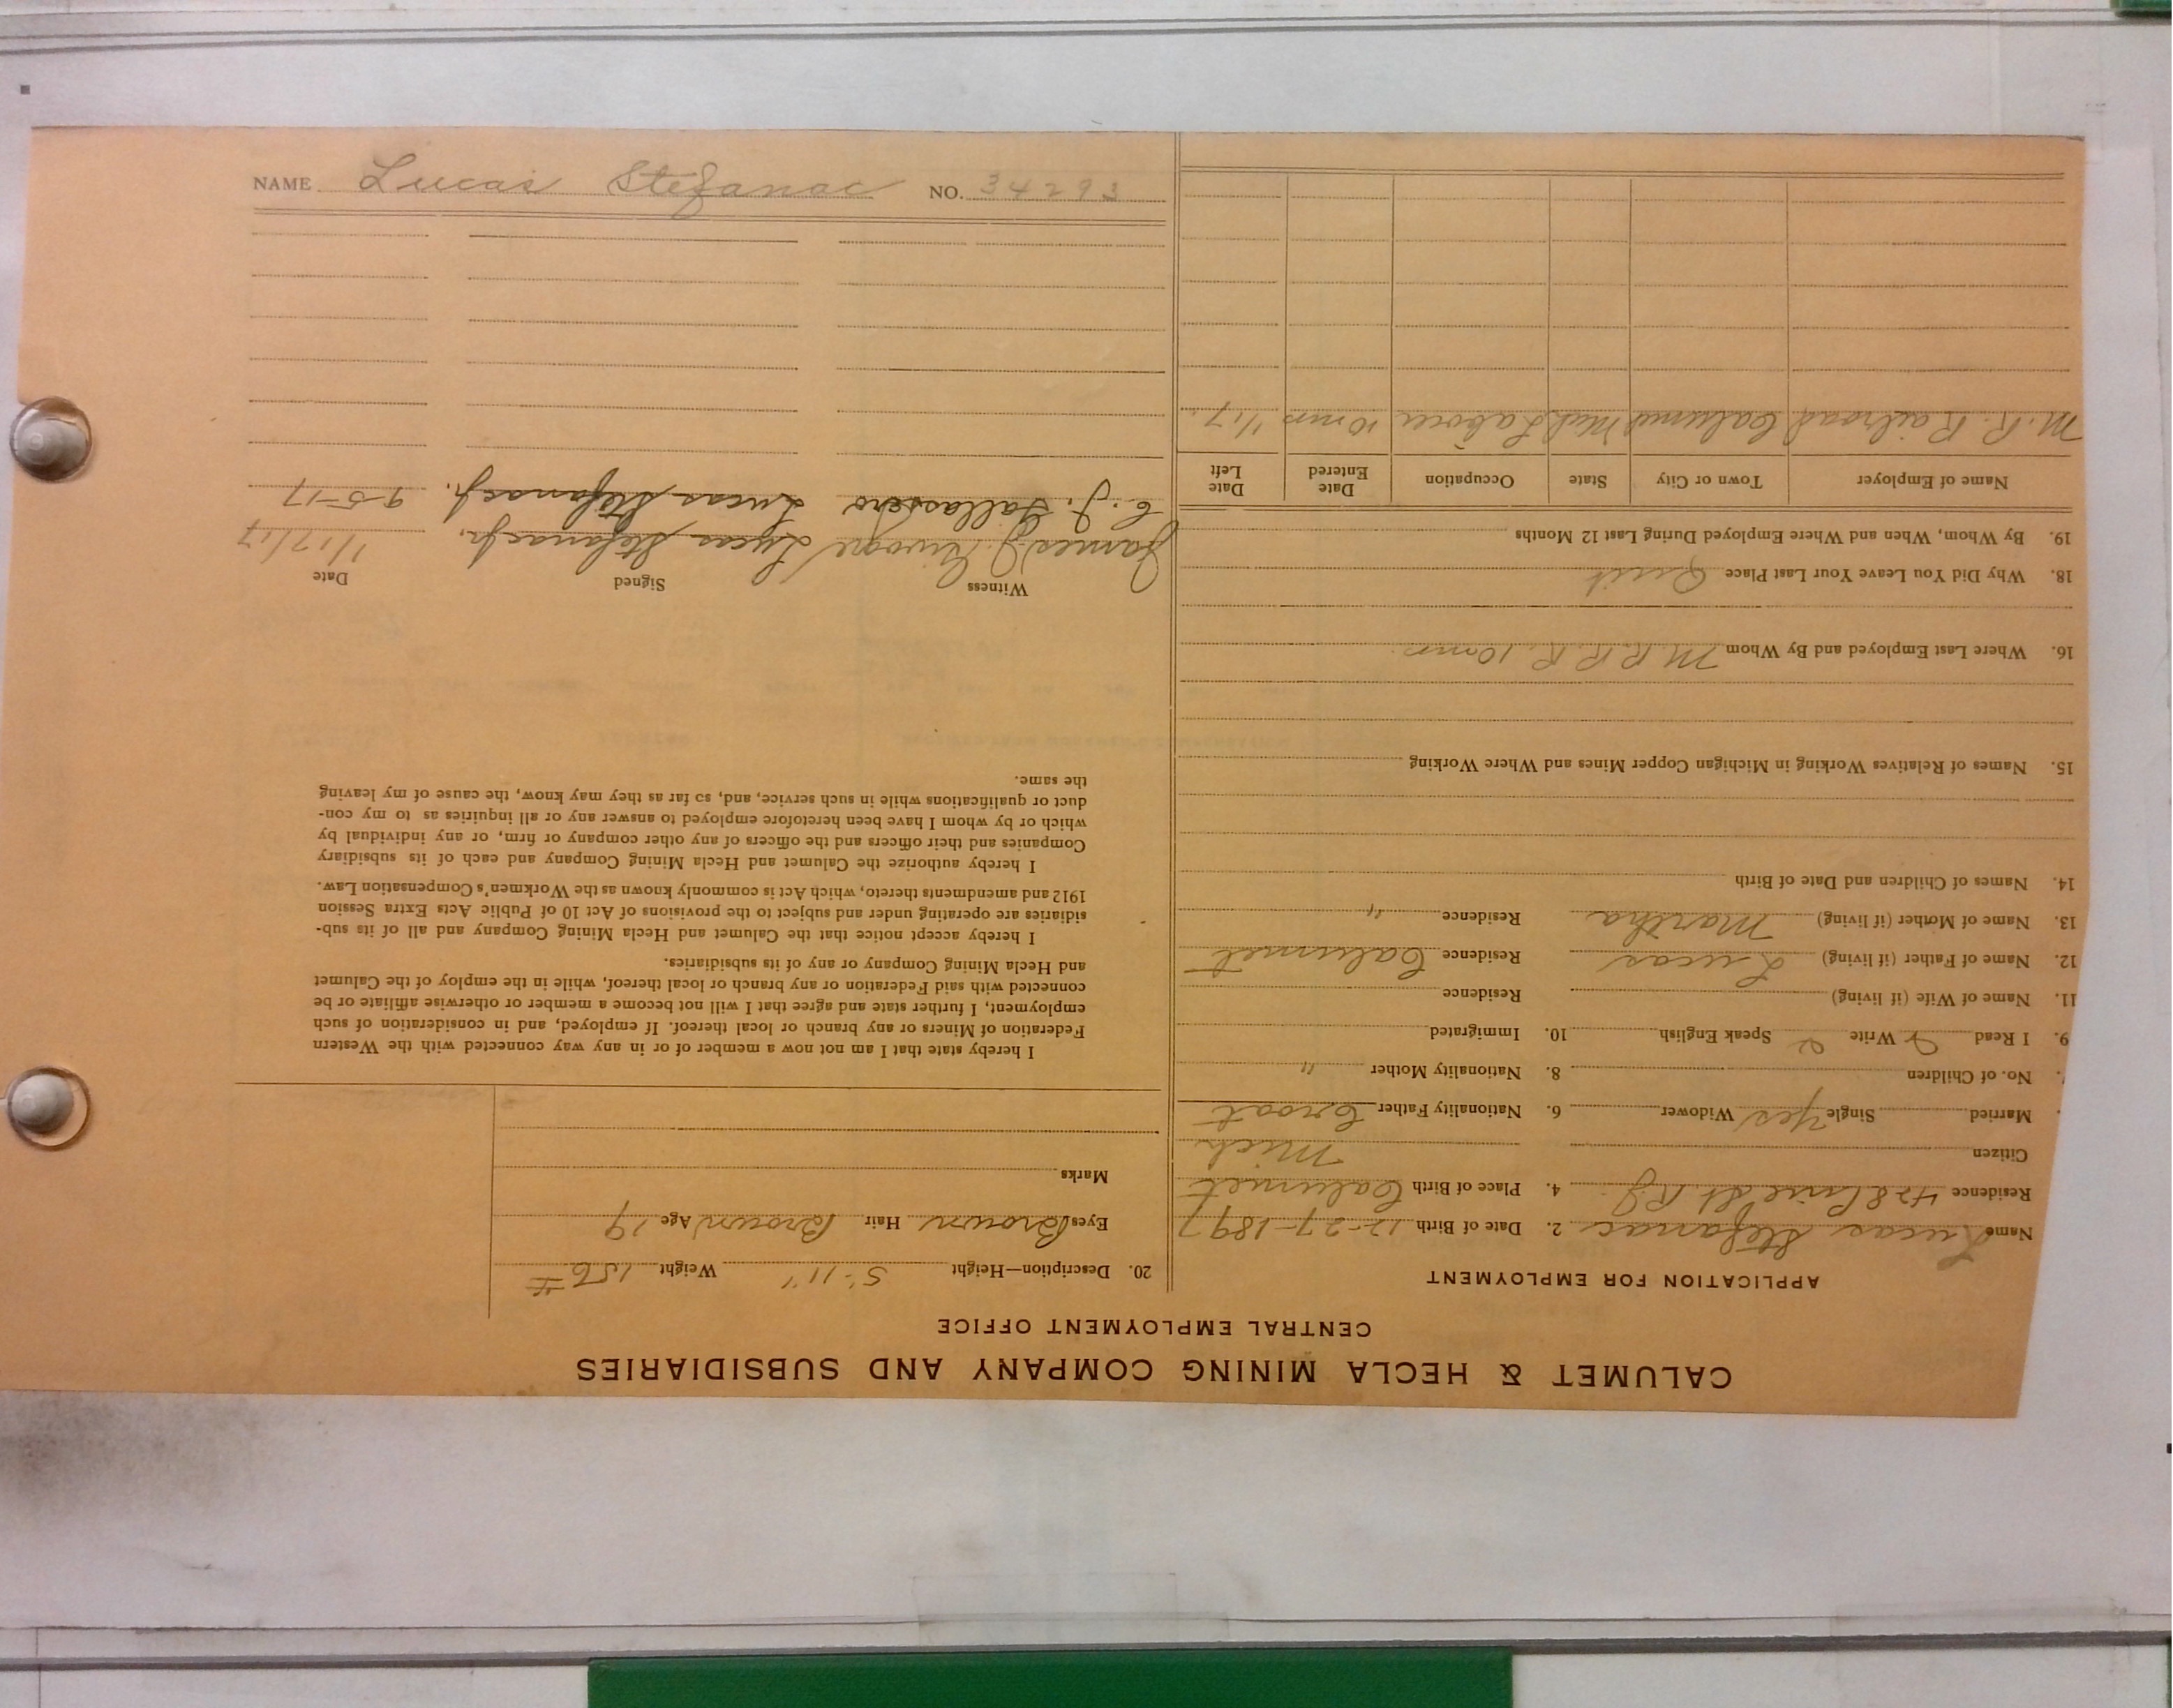 CALUMET & HECLA MINING COMPANY AND SUBSIDIARIES
CENTRAL EMPLOYMENT OFFICE
APPLICATION FOR EMPLOYMENT
Name Lucas Stefanac 2. Date of Birth 12-27-1897
Residence 428 Pine St R.J. 4. Place of Birth Calumet
Citizen Mich
Married Single Yes Widower 6. Nationality Father Croat
No. of Children 8. Nationality Mother "
9. I Read Write Speak English 10. Immigrated
11. Name of Wife (if living) Residence
12. Name of Father (if living) Lucas Residence Calumet
13. Name of Mother (if living) Martha Residence "
14. Names of Children and Date of Birth
15. Names of Relatives Working in Michigan Copper Mines and Where Working
16. Where Last Employed and By Whom M.R.R.R. 10 mos
18. Why Did You Leave Your Last Place Quit
19. By Whom, When and Where Employed During Last 12 Months
Name of Employer Town or City State Occupation Date Entered Date Left
M. R. Railroad Calumet Mich Laborer 10 mos 1/17
20. Description—Height 5'-11" Weight 156 #
Eyes Brown Hair Brown Age 19
Marks
I hereby state that I am not now a member of or in any way connected with the Western
Federation of Miners or any branch or local thereof. If employed, and in consideration of such
employment, I further state and agree that I will not become a member or otherwise affiliate or be
connected with said Federation or any branch or local thereof, while in the employ of the Calumet
and Hecla Mining Company or any of its subsidiaries.
I hereby accept notice that the Calumet and Hecla Mining Company and all of its sub-
sidiaries are operating under and subject to the provisions of Act 10 of Public Acts Extra Session
1912 and amendments thereto, which Act is commonly known as the Workmen's Compensation Law.
I hereby authorize the Calumet and Hecla Mining Company and each of its subsidiary
Companies and their officers and the officers of any other company or firm, or any individual by
which or by whom I have been heretofore employed to answer any or all inquiries as to my con-
duct or qualifications while in such service, and, so far as they may know, the cause of my leaving
the same.
Witness Signed Date
James J. Lucas Stefanac jr. 1/17/17
C. J. Lucas Stefanac jr. 9-5-17
NAME Lucas Stefanac NO. 34293